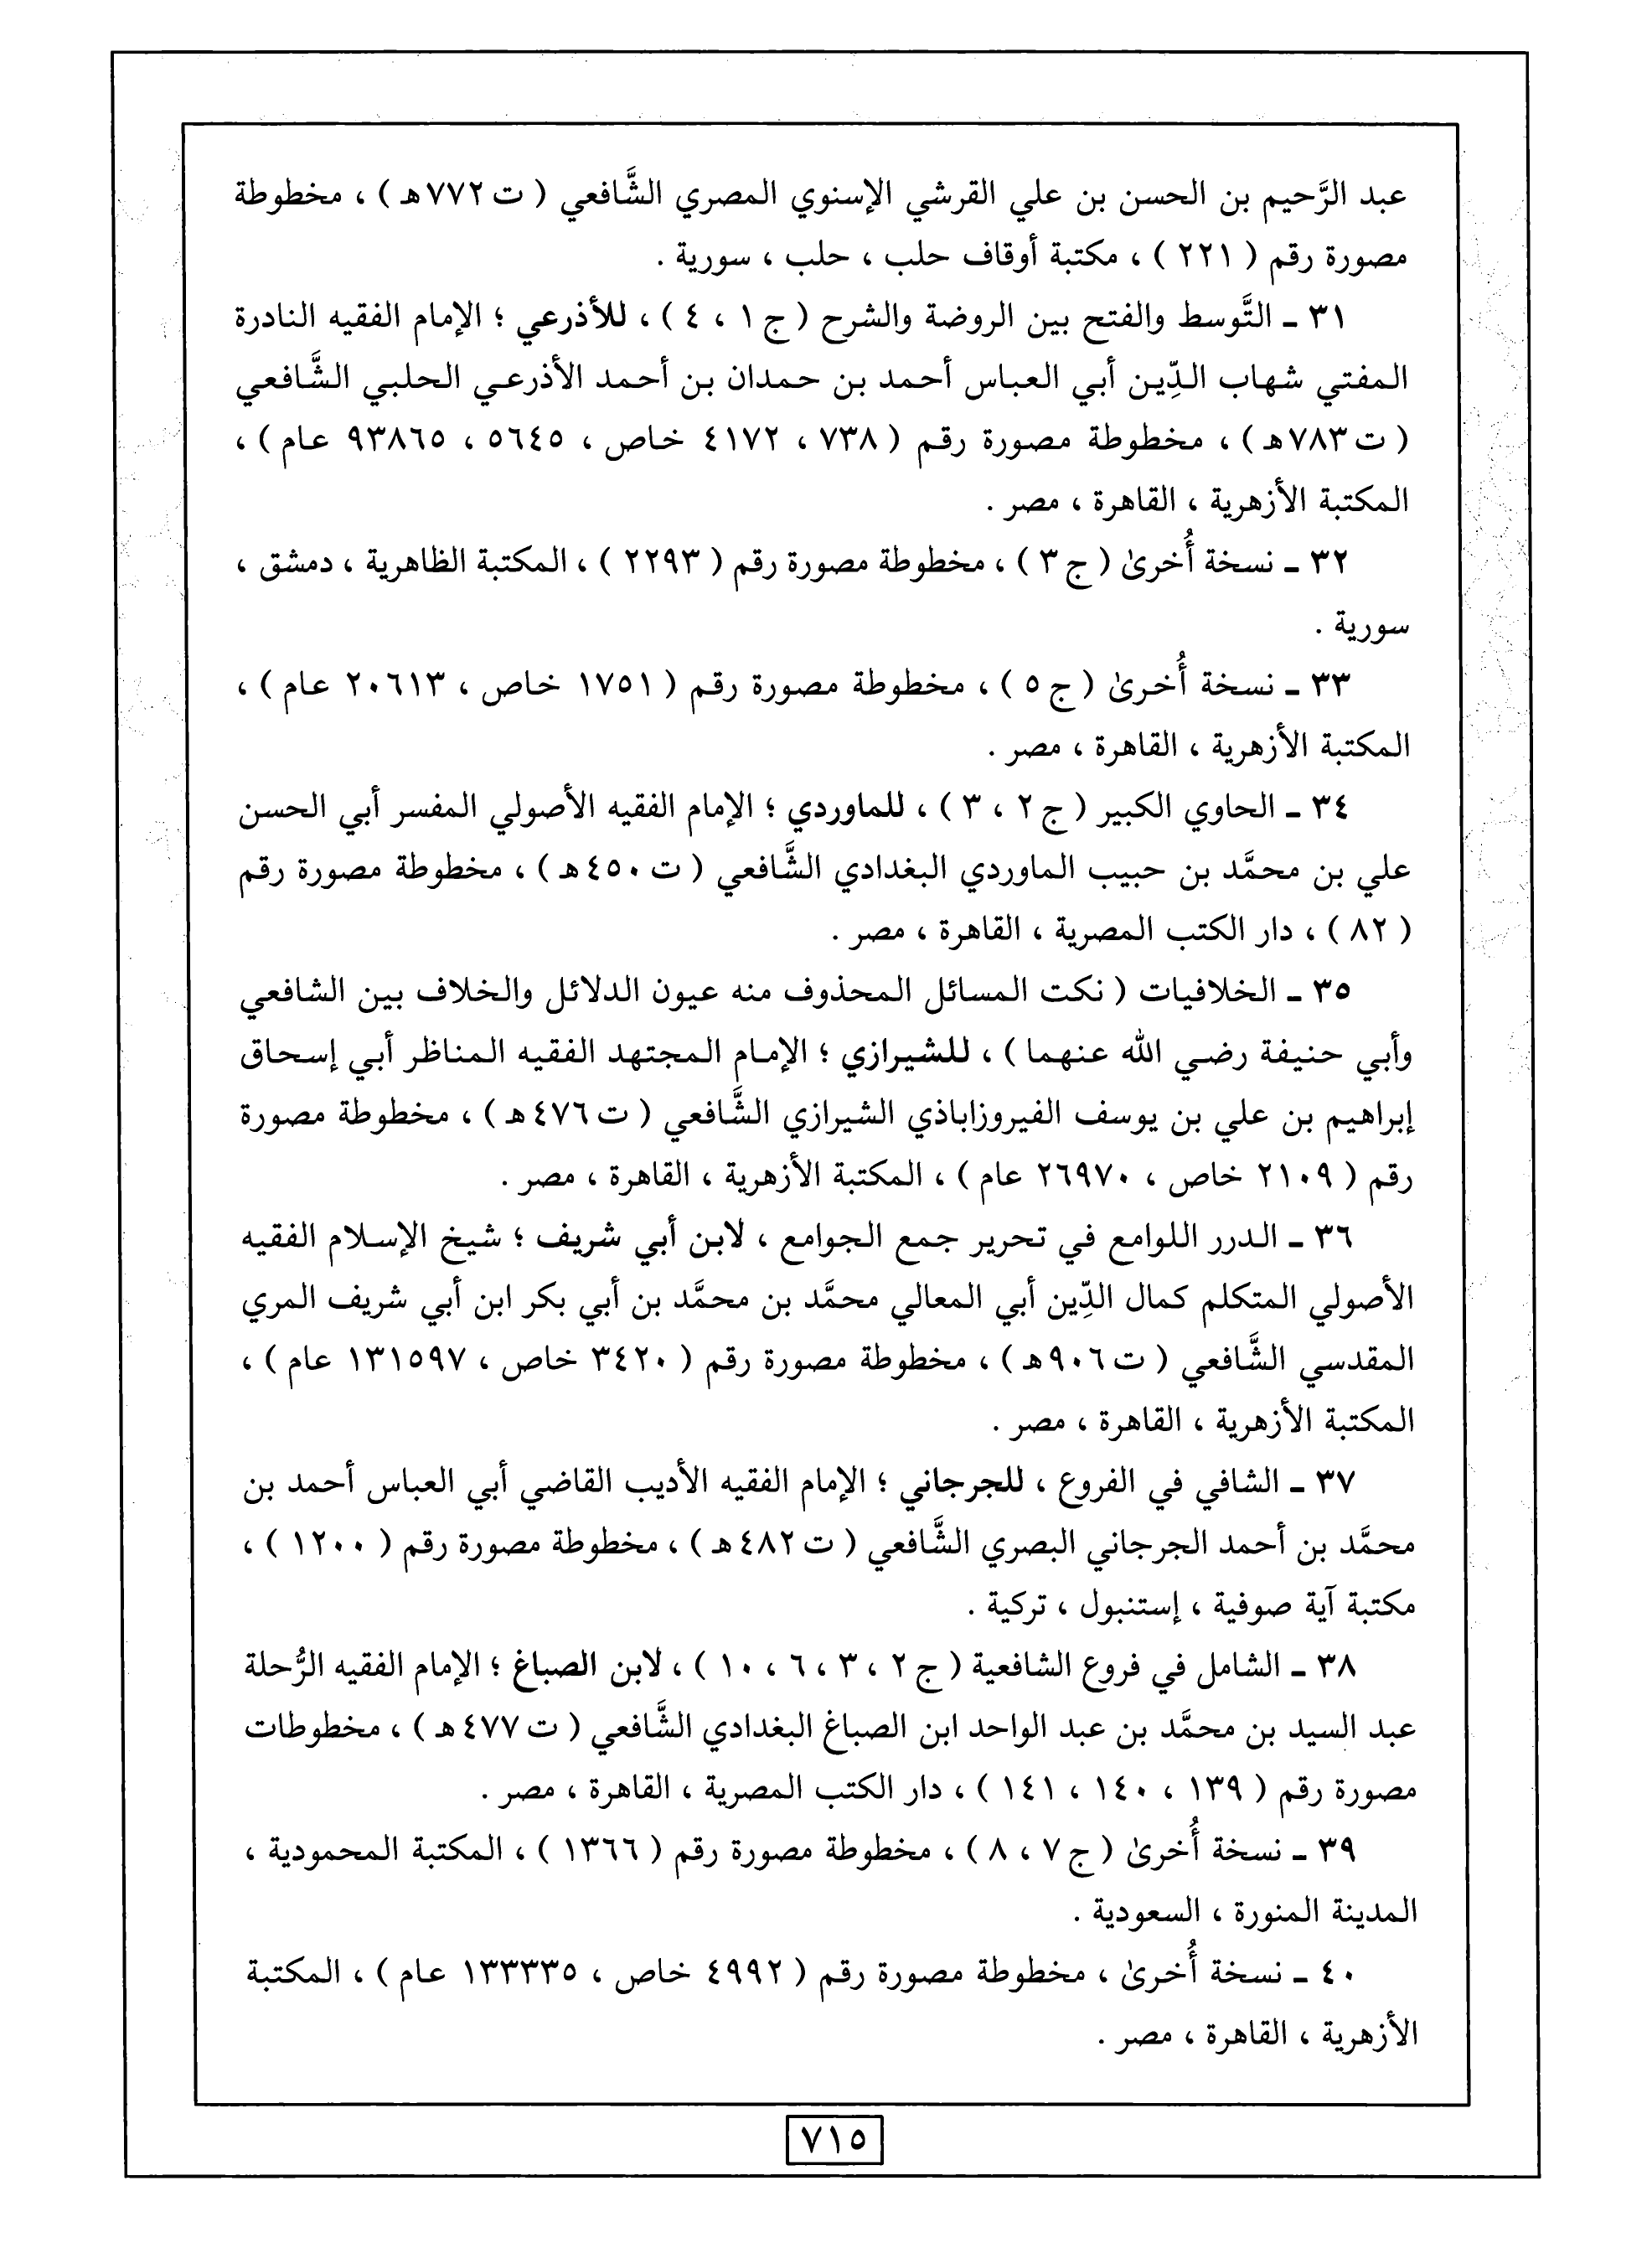 عبد الرَّحيم بن الحسن بن علي القرشي الإسنوي المصري الشَّافعي ( ت ٧٧٢هـ ) ، مخطوطة
مصورة رقم ( ٢٢١ ) ، مكتبة أوقاف حلب ، حلب ، سورية .
٣١ ـ التَّوسط والفتح بين الروضة والشرح ( ج ١ ، ٤ ) ، للأذرعي ؛ الإمام الفقيه النادرة
المفتي شهاب الدِّين أبي العباس أحمد بن حمدان بن أحمد الأذرعي الحلبي الشَّافعي
( ت ٧٨٣هـ ) ، مخطوطة مصورة رقم ( ٧٣٨ ، ٤١٧٢ خاص ، ٥٦٤٥ ، ٩٣٨٦٥ عام ) ،
المكتبة الأزهرية ، القاهرة ، مصر .
٣٢ ـ نسخة أُخرىٰ ( ج ٣ ) ، مخطوطة مصورة رقم ( ٢٢٩٣ ) ، المكتبة الظاهرية ، دمشق ،
سورية .
٣٣ ـ نسخة أُخرىٰ ( ج ٥ ) ، مخطوطة مصورة رقم ( ١٧٥١ خاص ، ٢٠٦١٣ عام ) ،
المكتبة الأزهرية ، القاهرة ، مصر .
٣٤ ـ الحاوي الكبير ( ج ٢ ، ٣ ) ، للماوردي ؛ الإمام الفقيه الأصولي المفسر أبي الحسن
علي بن محمَّد بن حبيب الماوردي البغدادي الشَّافعي ( ت ٤٥٠هـ ) ، مخطوطة مصورة رقم
( ٨٢ ) ، دار الكتب المصرية ، القاهرة ، مصر .
٣٥ ـ الخلافيات ( نكت المسائل المحذوف منه عيون الدلائل والخلاف بين الشافعي
وأبي حنيفة رضي الله عنهما ) ، للشيرازي ؛ الإمام المجتهد الفقيه المناظر أبي إسحاق
إبراهيم بن علي بن يوسف الفيروزاباذي الشيرازي الشَّافعي ( ت ٤٧٦هـ ) ، مخطوطة مصورة
رقم ( ٢١٠٩ خاص ، ٢٦٩٧٠ عام ) ، المكتبة الأزهرية ، القاهرة ، مصر .
٣٦ ـ الدرر اللوامع في تحرير جمع الجوامع ، لابن أبي شريف ؛ شيخ الإسلام الفقيه
الأصولي المتكلم كمال الدِّين أبي المعالي محمَّد بن محمَّد بن أبي بكر ابن أبي شريف المري
المقدسي الشَّافعي ( ت ٩٠٦هـ ) ، مخطوطة مصورة رقم ( ٣٤٢٠ خاص ، ١٣١٥٩٧ عام ) ،
المكتبة الأزهرية ، القاهرة ، مصر .
٣٧ ـ الشافي في الفروع ، للجرجاني ؛ الإمام الفقيه الأديب القاضي أبي العباس أحمد بن
محمَّد بن أحمد الجرجاني البصري الشَّافعي ( ت ٤٨٢هـ ) ، مخطوطة مصورة رقم ( ١٢٠٠ ) ،
مكتبة آية صوفية ، إستنبول ، تركية .
٣٨ ـ الشامل في فروع الشافعية ( ج ٢ ، ٣ ، ٦ ، ١٠ ) ، لابن الصباغ ؛ الإمام الفقيه الرُّحلة
عبد السيد بن محمَّد بن عبد الواحد ابن الصباغ البغدادي الشَّافعي ( ت ٤٧٧هـ ) ، مخطوطات
مصورة رقم ( ١٣٩ ، ١٤٠ ، ١٤١ ) ، دار الكتب المصرية ، القاهرة ، مصر .
٣٩ ـ نسخة أُخرىٰ ( ج ٧ ، ٨ ) ، مخطوطة مصورة رقم ( ١٣٦٦ ) ، المكتبة المحمودية ،
المدينة المنورة ، السعودية .
٤٠ ـ نسخة أُخرىٰ ، مخطوطة مصورة رقم ( ٤٩٩٢ خاص ، ١٣٣٣٣٥ عام ) ، المكتبة
الأزهرية ، القاهرة ، مصر .
٧١٥